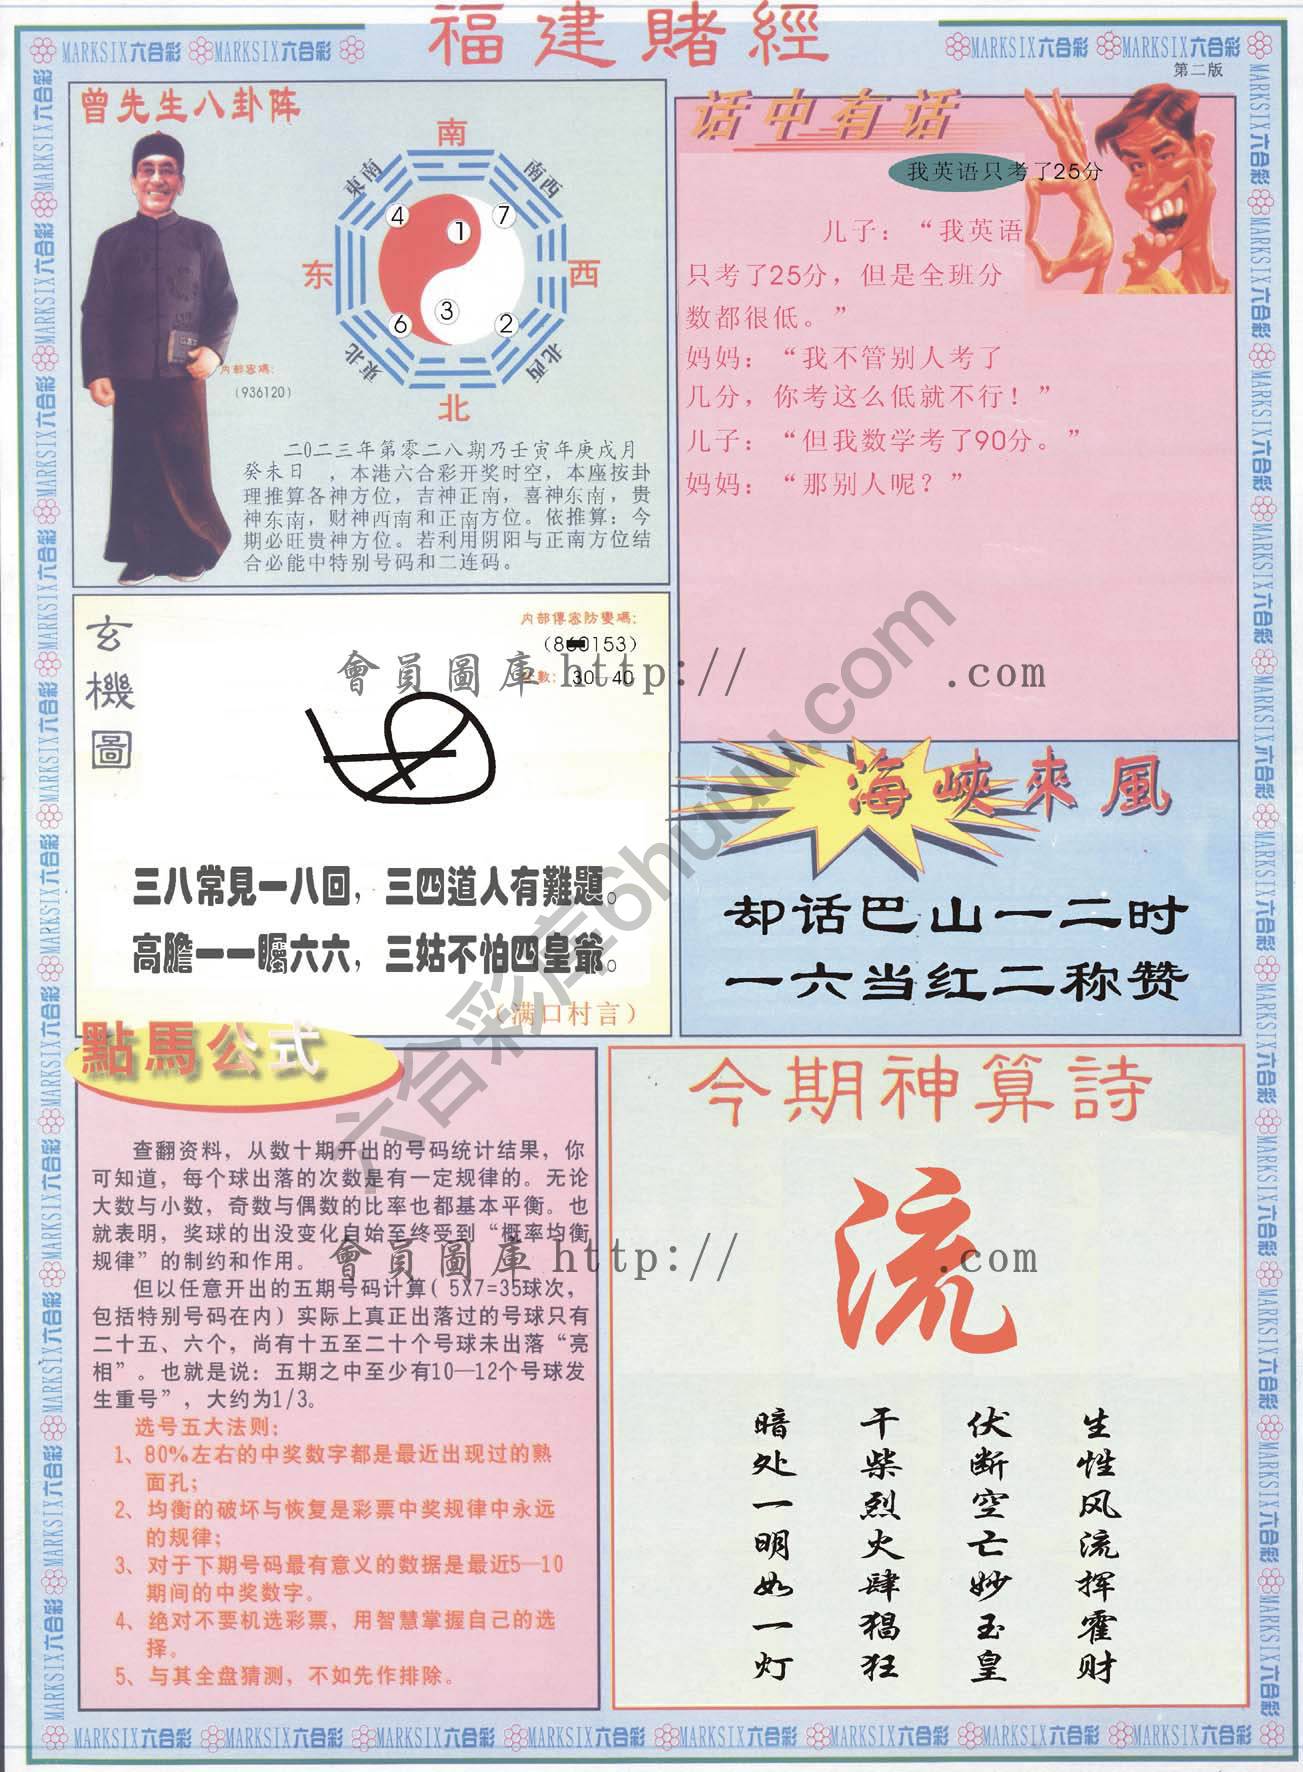 福建賭經
MARKSIX六合彩 MARKSIX六合彩
MARKSIX六合彩 MARKSIX六合彩
第二版
曾先生八卦阵
南
東南
南西
4
1
7
东
西
6
3
2
東北
北西
北
内部密碼:
(936120)
二0二三年第零二八期乃壬寅年庚戌月
癸未日 ,本港六合彩开奖时空,本座按卦
理推算各神方位,吉神正南,喜神东南,贵
神东南,财神西南和正南方位。依推算:今
期必旺贵神方位。若利用阴阳与正南方位结
合必能中特别号码和二连码。
话中有话
我英语只考了25分
儿子:“我英语
只考了25分,但是全班分
数都很低。”
妈妈:“我不管别人考了
几分,你考这么低就不行!”
儿子:“但我数学考了90分。”
妈妈:“那别人呢?”
玄機圖
内部傳密防變碼:
(860153)
數: 30 40
會員圖庫 http:// .com
三八常見一八回,三四道人有難題。
高膽一一矚六六,三姑不怕四皇爺。
(满口村言)
海峽來風
却话巴山一二时
一六当红二称赞
六合彩库6huuu.com
點馬公式
查翻资料,从数十期开出的号码统计结果,你
可知道,每个球出落的次数是有一定规律的。无论
大数与小数,奇数与偶数的比率也都基本平衡。也
就表明,奖球的出没变化自始至终受到“概率均衡
规律”的制约和作用。
但以任意开出的五期号码计算(5X7=35球次,
包括特别号码在内)实际上真正出落过的号球只有
二十五、六个,尚有十五至二十个号球未出落“亮
相”。也就是说:五期之中至少有10—12个号球发
生重号”,大约为1/3。
选号五大法则:
1、80%左右的中奖数字都是最近出现过的熟
面孔;
2、均衡的破坏与恢复是彩票中奖规律中永远
的规律;
3、对于下期号码最有意义的数据是最近5—10
期间的中奖数字。
4、绝对不要机选彩票,用智慧掌握自己的选
择。
5、与其全盘猜测,不如先作排除。
會員圖庫 http:// .com
今期神算詩
流
生性风流挥霍财
伏断空亡妙玉皇
干柴烈火肆猖狂
暗处一明如一灯
MARKSIX六合彩 MARKSIX六合彩 MARKSIX六合彩 MARKSIX六合彩 MARKSIX六合彩 MARKSIX六合彩 MARKSIX六合彩 MARKSIX六合彩